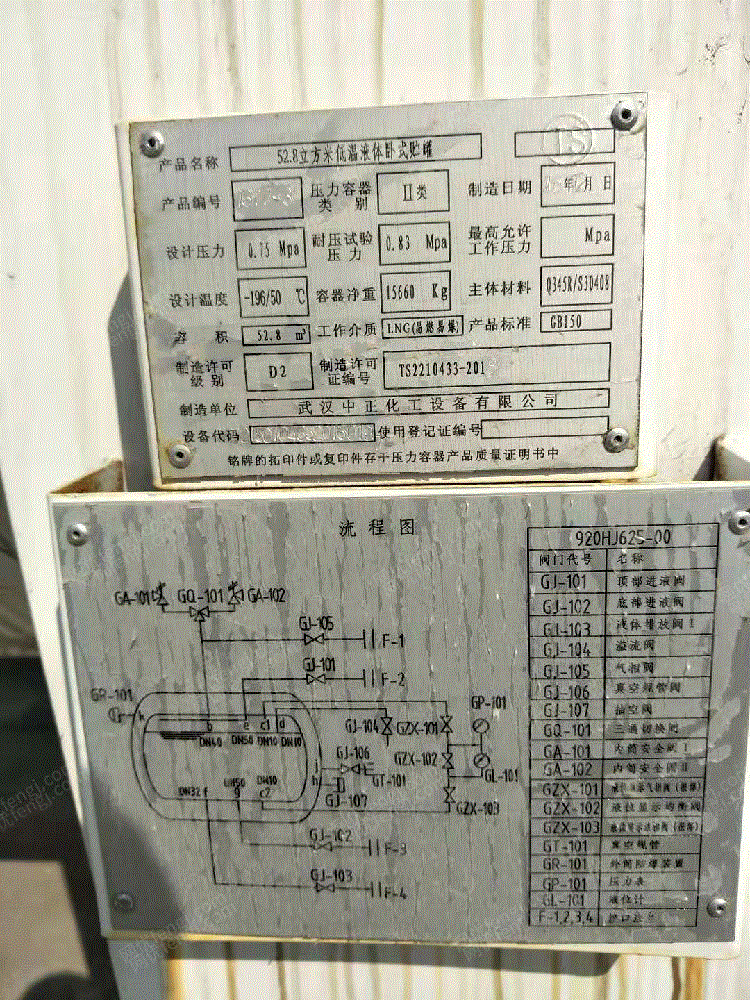 TS
产品名称 52.8立方米低温液体卧式贮罐
产品编号 压力容器类别 II类 制造日期 年 月 日
设计压力 0.75 Mpa 耐压试验压力 0.83 Mpa 最高允许工作压力 Mpa
设计温度 -196/50 ℃ 容器净重 15660 Kg 主体材料 Q345R/S30408
容 积 52.8 m³ 工作介质 LNG(易燃易爆) 产品标准 GB150
制造许可级别 D2 制造许可证编号 TS2210433-201
制造单位 武汉中正化工设备有限公司
设备代码 使用登记证编号
铭牌的拓印件或复印件存于压力容器产品质量证明书中
流程图
920HJ625-00
阀门代号 名称
GJ-101 顶部进液阀
GJ-102 底部进液阀
GJ-103 液体排放阀
GJ-104 溢流阀
GJ-105 气相阀
GJ-106 真空规管阀
GJ-107 抽空阀
GQ-101 三通切换阀
GA-101 内筒安全阀
GA-102 内筒安全阀
GZX-101
GZX-102 液位显示均衡阀
GZX-103
GT-101 真空规管
GR-101 外筒防爆装置
GP-101 压力表
GL-101 液位计
F-1,2,3,4
GA-101 GQ-101 GA-102
GJ-105
F-1
GJ-101
F-2
GR-101
GP-101
h b e c1 d
DN40 DN50 DN10 DN10
GJ-104 GZX-101
GJ-106
GZX-102
GT-101
GL-101
GJ-107
DN32 f DN50 g DN10 c2
GZX-103
GJ-102
F-3
GJ-103
F-4